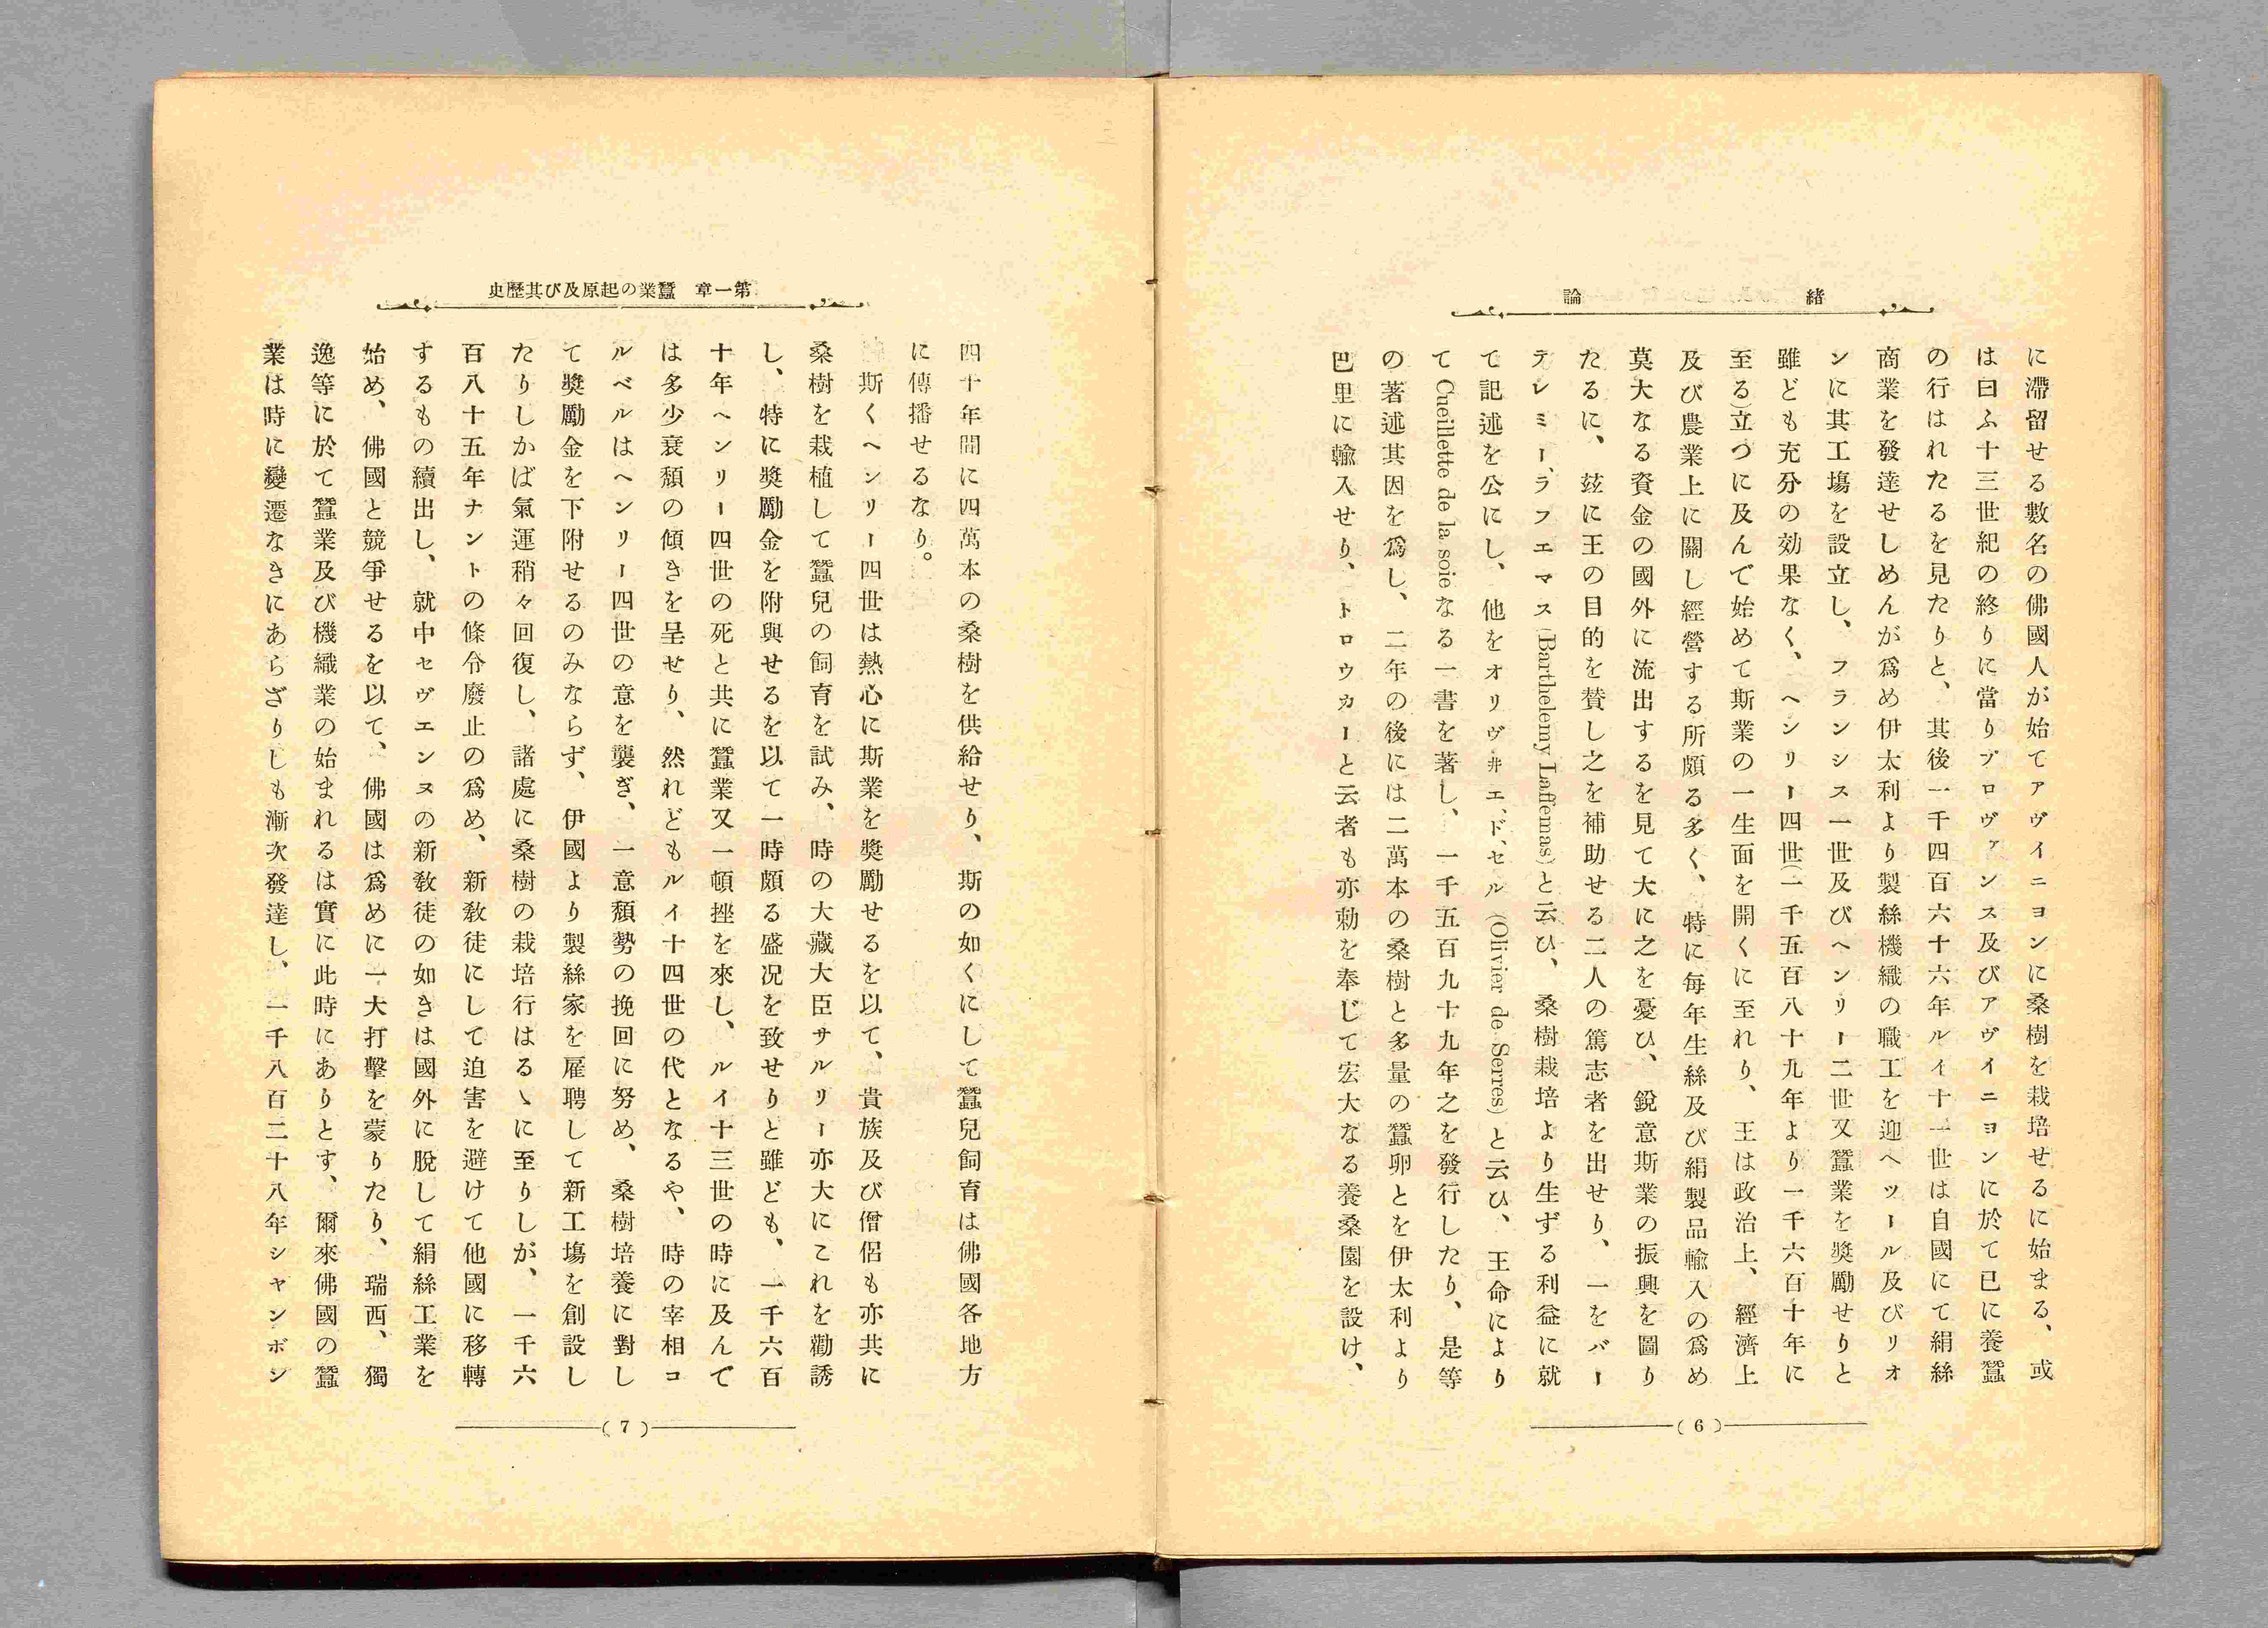 緒論
に滯留せる數名の佛國人が始てアヴイニヨンに桑樹を栽培せるに始まる、或
は曰ふ十三世紀の終りに當りプロヴァンス及びアヴイニヨンに於て已に養蠶
の行はれたるを見たりと、其後一千四百六十六年ルイ十一世は自國にて絹絲
商業を發達せしめんが爲め伊太利より製絲機織の職工を迎へツール及びリオ
ンに其工塲を設立し、フランシス一世及びヘンリー二世又蠶業を奬勵せりと
雖ども充分の効果なく、ヘンリー四世(一千五百八十九年より一千六百十年に
至る)立つに及んで始めて斯業の一生面を開くに至れり、王は政治上、經濟上
及び農業上に關し經營する所頗る多く、特に每年生絲及び絹製品輸入の爲め
莫大なる資金の國外に流出するを見て大に之を憂ひ、銳意斯業の振興を圖り
たるに、玆に王の目的を賛し之を補助せる二人の篤志者を出せり、一をバー
テレミー、ラフエマス(Barthelemy Laffemas)と云ひ、桑樹栽培より生ずる利益に就
て記述を公にし、他をオリヴ井エ、ド、セル(Olivier de Serres)と云ひ、王命により
て Cueillette de la soie なる一書を著し、一千五百九十九年之を發行したり、是等
の著述其因を爲し、二年の後には二萬本の桑樹と多量の蠶卵とを伊太利より
巴里に輸入せり、トロウカーと云者も亦勅を奉じて宏大なる養桑園を設け、
(6)
第一章 蠶業の起原及び其歷史
四十年間に四萬本の桑樹を供給せり、斯の如くにして蠶兒飼育は佛國各地方
に傳播せるなり。
斯くヘンリー四世は熱心に斯業を奬勵せるを以て、貴族及び僧侶も亦共に
桑樹を栽植して蠶兒の飼育を試み、時の大藏大臣サルリー亦大にこれを勸誘
し、特に奬勵金を附與せるを以て一時頗る盛况を致せりと雖ども、一千六百
十年ヘンリー四世の死と共に蠶業又一頓挫を來し、ルイ十三世の時に及んで
は多少衰頽の傾きを呈せり、然れどもルイ十四世の代となるや、時の宰相コ
ルベルはヘンリー四世の意を襲ぎ、一意頽勢の挽回に努め、桑樹培養に對し
て奬勵金を下附せるのみならず、伊國より製絲家を雇聘して新工塲を創設し
たりしかば氣運稍々回復し、諸處に桑樹の栽培行はるゝに至りしが、一千六
百八十五年ナントの條令廢止の爲め、新敎徒にして迫害を避けて他國に移轉
するもの續出し、就中セヴエンヌの新敎徒の如きは國外に脫して絹絲工業を
始め、佛國と競爭せるを以て、佛國は爲めに一大打擊を蒙りたり、瑞西、獨
逸等に於て蠶業及び機織業の始まれるは實に此時にありとす、爾來佛國の蠶
業は時に變遷なきにあらざりしも漸次發達し、一千八百二十八年シヤンボン
(7)